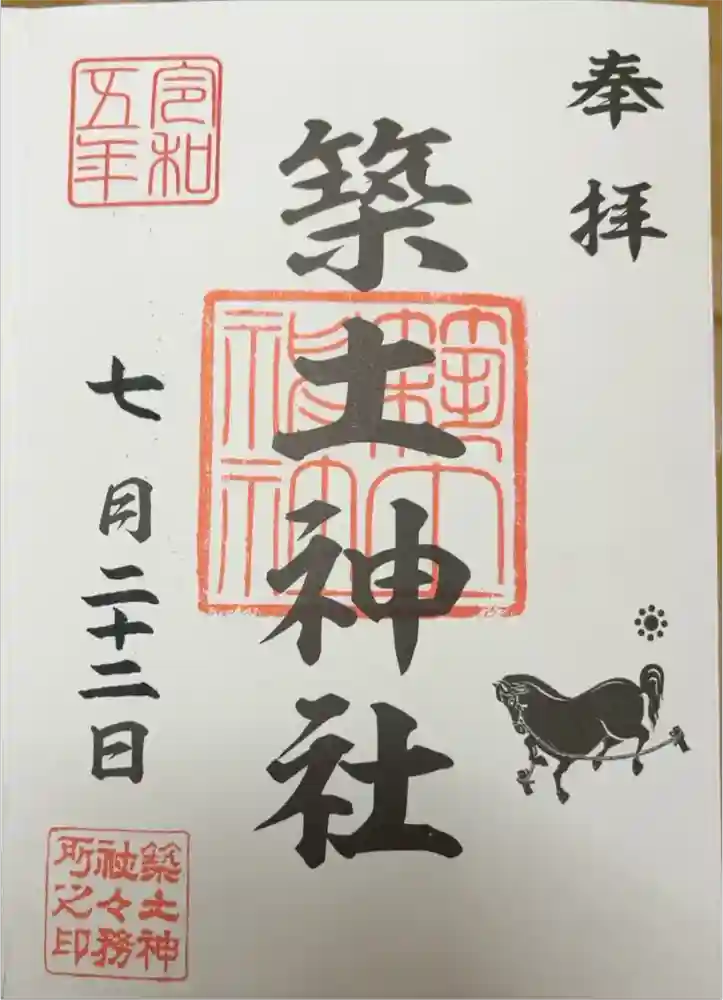 奉拝
築土神社
築土神社
令和五年
七月二十二日
築土神
社々務
所之印